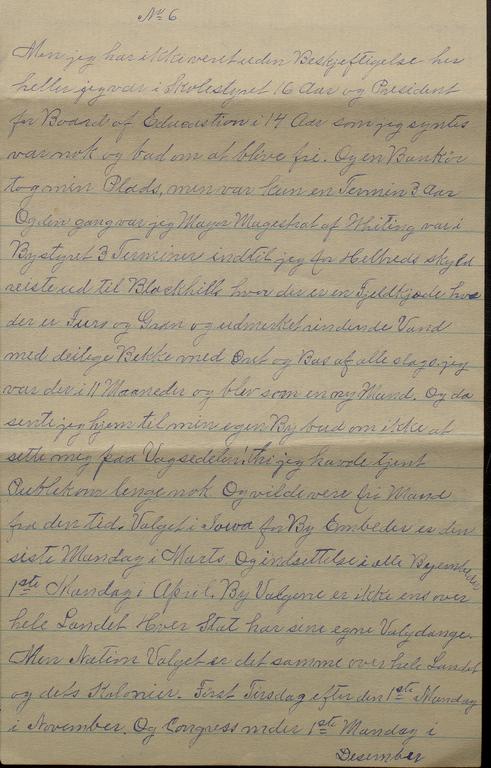 No 6
Men jeg har ikke veret uden Beskjeftigelse her
heller jeg var i Skolestyret 16 Aar og President
for Board of Education i 14 Aar som jeg syntes
var nok og bad om at blive fri. Og en Bankör
tog min Plads, men var kun en Termin 3 Aar
Og den gang var jeg Mayor Magestrat af Whiting var i
Bystyret 3 Terminer indtil jeg for Helbreds skyld
reiste ud til Blackhills hvor der er en Fjeldkjede hvor
der er Furu og Gran og udmerket rindende Vand
med deilege Bekke med Öret og Bas af alle slags. jeg
var der i 11 Maaneder og blev som en ny Mand. Og da
sente jeg hjem til min egen By bud om ikke at
sette mig paa Vagsedelen! thi jeg havde tjent
Publikom lenge nok Og vilde vere fri Mand
fra den tid. Valget i Iowa for By Embeder er den
siste Mandag i Marts. Og indsettelse i alle Byembeder
1ste Mandag i April. By Valgene er ikke ens over
hele Landet Hver Stat har sine egne Valgdange.
Men Nation Valget er det samme over hele Landet
og dets Kolonier. First Tirsdag efter den 1ste Mandag
i November. Og Congress möder 1ste Mandag i
Desember